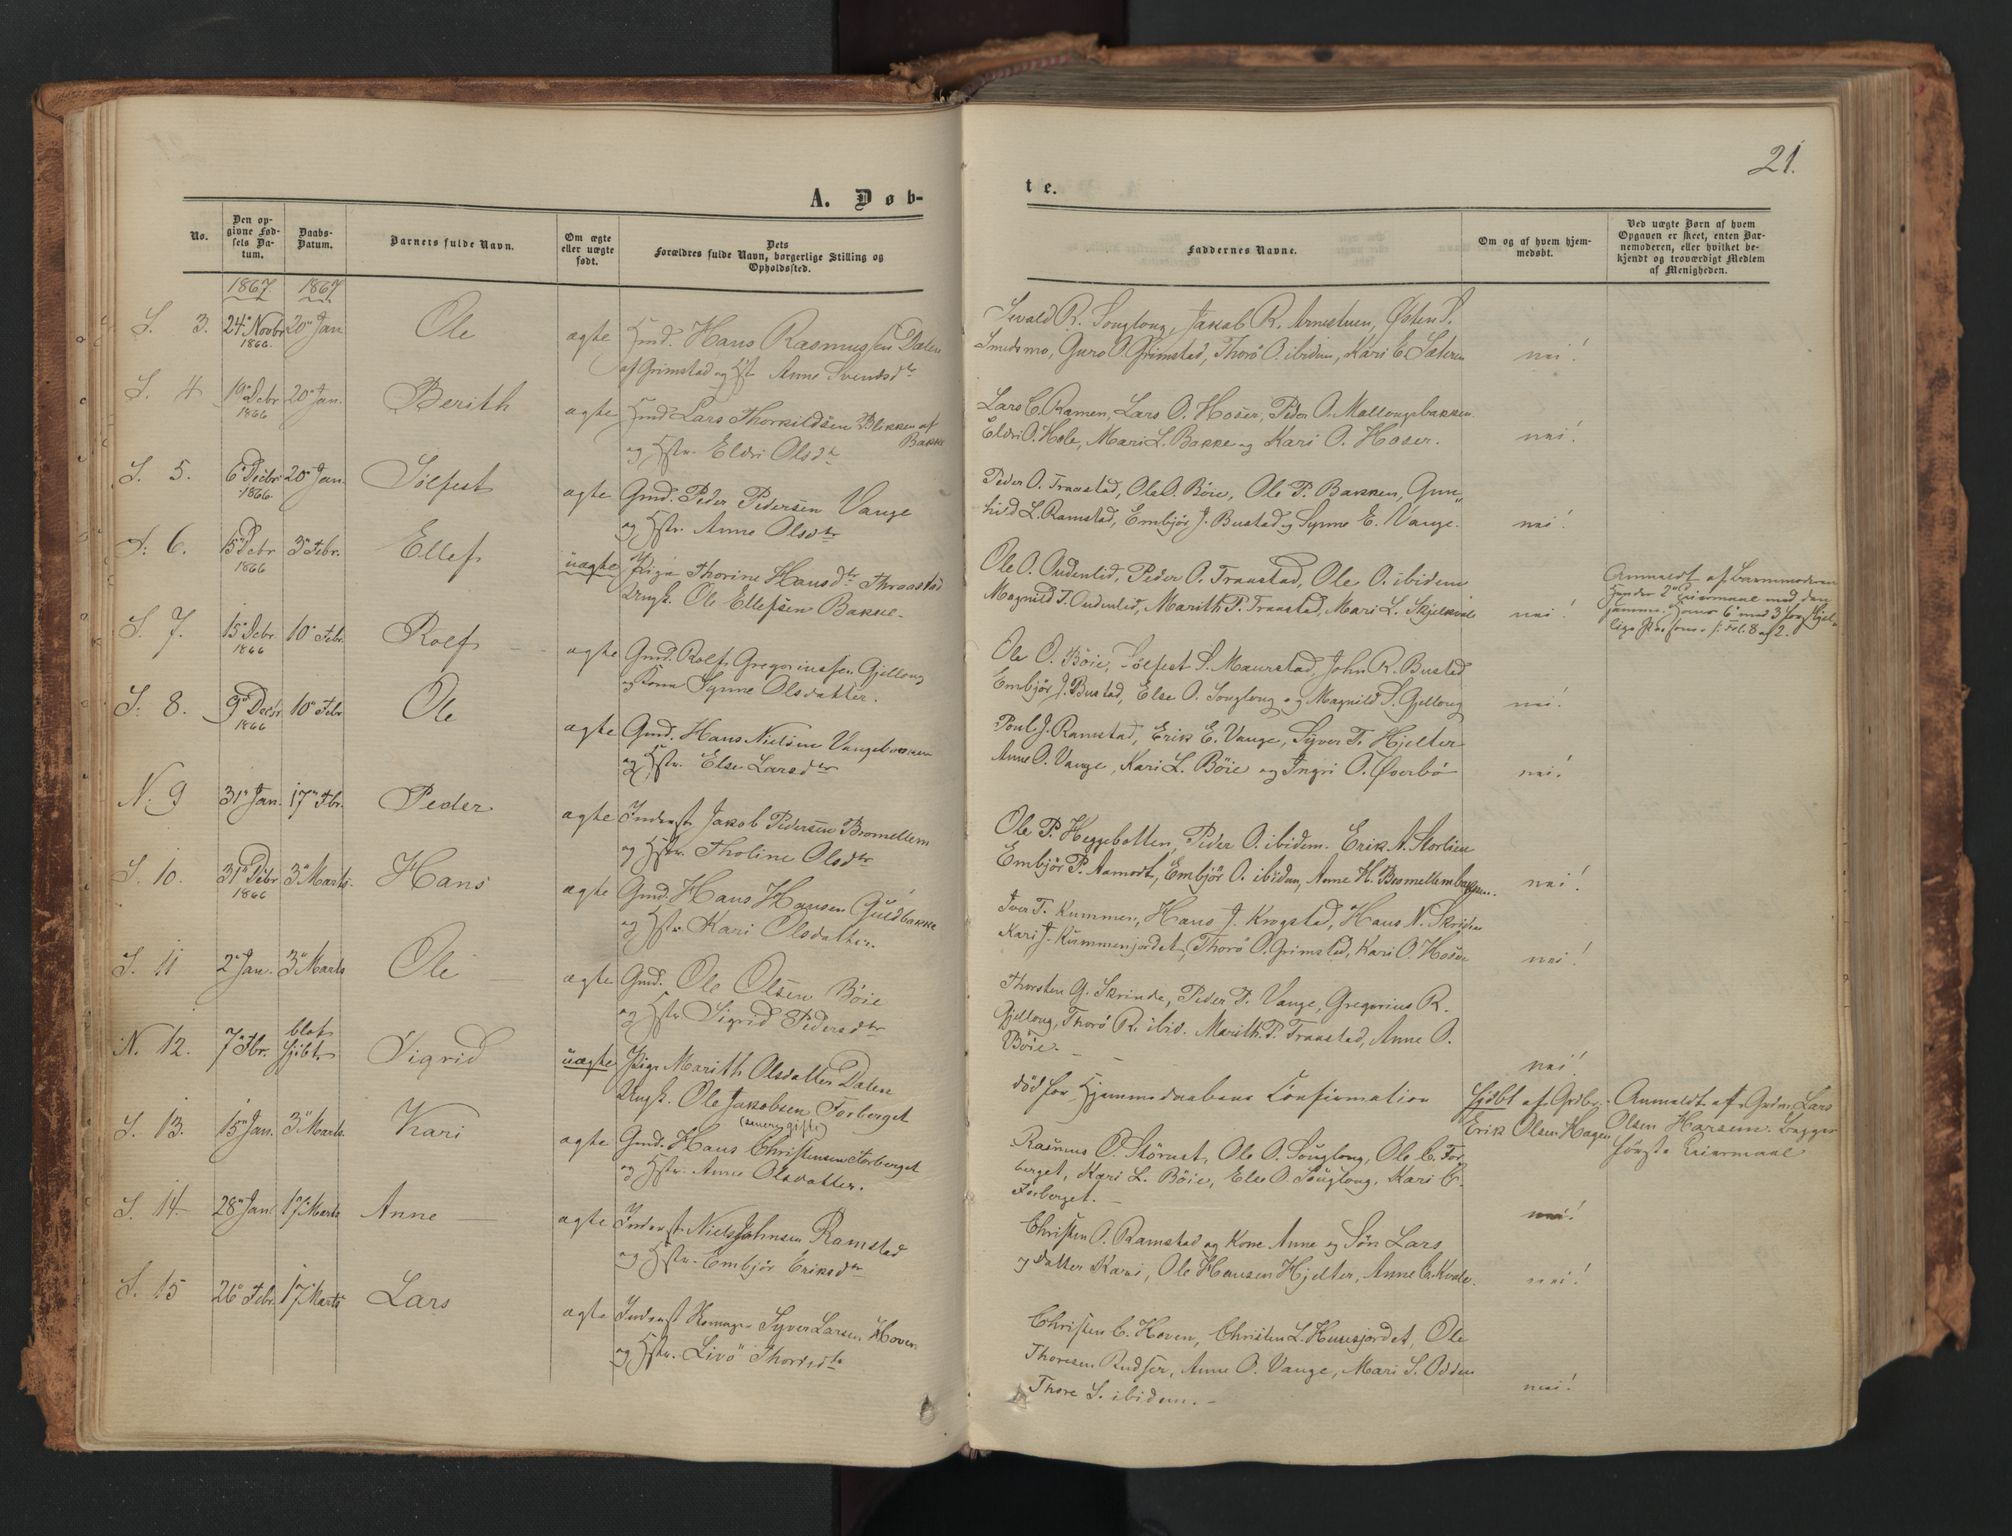 21.
A. Døb-
te.
No.
Den opgivne Fødsels Datum.
Daabs-Datum.
Barnets fulde Navn.
Om ægte eller uægte født.
Dets Forældres fulde Navn, borgerlige Stilling og Opholdssted.
Faddernes Navne.
Om og af hvem hjemmedøbt.
Ved uægte Børn af hvem Opgaven er skeet, enten Barnemoderen, eller hvilket bekjendt og troværdigt Medlem af Menigheden.
1867. 1867
S. 3. 24 Novbr 1866. 20 Jan Ole ægte
Hans Rasmussen Dalen
af Grimstad og Anne Svendsdtr
Sivald R. Songlong, Jakob R. Arnestuen, Østen S.
Smedsmo, Guro O. Grimstad, Thorø O. ibidem, Kari E. Sæteren
nei!
S. 4 19 Debr 1866 20 Jan. Berith ægte
Lars Thorkildsen Blekken af
Bakke
og Hstr. Eldri Olsdtr
Lars C. Ramen, Lars O. Hoser, Peder O. Mallongsbakken
Eldri O. Hole, Mari L. Bakke og Kari O. Hoser.
nei!
S. 5. 6 Decbr 1866. 20 Jan. Sølfest ægte
Gmd. Peder Pedersen Vange
og Hstr. Anne Olsdtr
Peder O. Traastad, Ole O. Böie, Ole P. Bakken, Gun„
hild L. Ramstad, Embjør J. Bustad og Synne E. Vange.
nei!
S. 6. 15 Debr 1866 3 Febr. Ellef uægte
Pige Thorine Hansdtr Thraastad
Ungk. Ole Ellefsen Bakke.
Ole O. Oudenlid, Peder O. Traastad, Ole O. ibidem
Magnild T. Oudenlid, Marith P. Traastad, Mari L. Skjelkvale
nei!
Anmeldt af Barnmoderen
S. 7. 15 Debr 1866 10 Febr. Rolf ægte
Gmd. Rolf Gregoriussen Gjellong
og Kone Synne Olsdatter.
Ole O. Böie, Sølfest S. Maurstad, John R. Bustad
Embjør J. Bustad, Else O. Songlong og Magnild S. Gjellong
nei!
S. 8. 9 Decbr 1866 10 Febr Ole ægte
Gmd. Hans Nielsen Vangebakken
og Hstr. Else Larsdtr
Poul J. Ramstad, Erik E. Vange, Syver T. Hjelter
Anne O. Vange, Kari L. Böie og Ingri O. Øverbø
nei!
N. 9 31 Jan. 17 Fbr. Peder ægte
Inderst Jakob Pedersen Bromellem
og Hstr. Tholine Olsdtr
Ole P. Heggebotten, Peder O. ibidem. Erik A. Storlien
Embjør P. Aamodt, Embjør O. ibidem, Anne H. Bromellembakken.
nei!
S. 10. 31 Debr 1866 3 Marts. Hans ægte
Gmd. Hans Hansen Guldbakke
og Hstr. Kari Olsdatter.
Iver T. Kummen, Hans J. Krogstad, Hans N. Skriden
Kari J. Kummenjordet, Thorø O. Grimstad, Kari O. Hoser
nei!
S. 11 2 Jan. 3 Marts Ole ægte
Gmd. Ole Olsen Böie
og Hstr. Sigrid Pedersdtr
Thorsten G. Skrinde, Peder P. Vange, Gregorius R.
Gjellong, Thorø R. ibid. Marith P. Traastad, Anne O.
Böie.
nei!
N. 12. 7 Fbr. blot hjdbt. Sigrid uægte
Pige Marith Olsdatter Dalen
Ungk. Ole Jakobsen Forberget
død for Hjemmedaabens Confirmation
Hjdbt af Grdbr.
Erik Olsen Hagen
Anmeldt af Lars
Olsen Harsem. Begges
første Leiermaal
S. 13. 15 Jan. 3 Marts. Kari ægte
Gmd. Hans Christensen Forberget
og Hstr. Anne Olsdatter.
Rasmus O. Störust, Ole O. Songlong, Ole C. For
berget, Kari L. Böie, Else O. Songlong, Kari C.
Forberget.
nei!
S. 14. 28 Jan. 17 Marts Anne ægte
Inderst Niels Johnsen Ramstad
og Hstr. Embjør Eriksdtr
Christen O. Ramstad og Kone Anne og Søn Lars
og Datter Kari, Ole Hansen Hjelter, Anne C. Kvale.
nei!
S. 15 26 Febr. 17 Marts Lars ægte
Inderst Syver Larsen Hoven
og Hstr. Livö Thorsdtr
Christen C. Hoven, Christen L. Huusjordet, Ole
Thoresen Rudser, Anne O. Vange, Mari S. Odden
Thore S. ibidem.
nei!